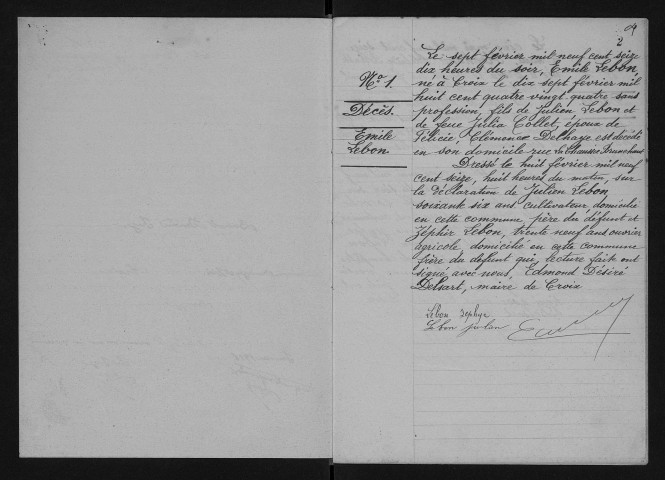 2
Nº 1.
Décès.
Emile
Lebon
Le sept février mil neuf cent seize
dix heures du soir, Emile Lebon
né à Croix le dix sept février mil
huit cent quatre vingt quatre sans
profession, fils de Julien Lebon et
de feue Julia Collet, époux de
Félicie, Clémence Delhaye est décédé
en son domicile rue La Chaussée Brunehaut
Dressé le huit février mil neuf
cent seize, huit heures du matin, sur
la déclaration de Julien Lebon
soixante six ans cultivateur domicilié
en cette commune père du défunt et
Zéphir Lebon, trente neuf ans ouvrier
agricole domicilié en cette commune
frère du défunt qui, lecture faite ont
signé avec nous, Edmond Désiré
Delsart, maire de Croix
Lebon Zephyr
Lebon julien